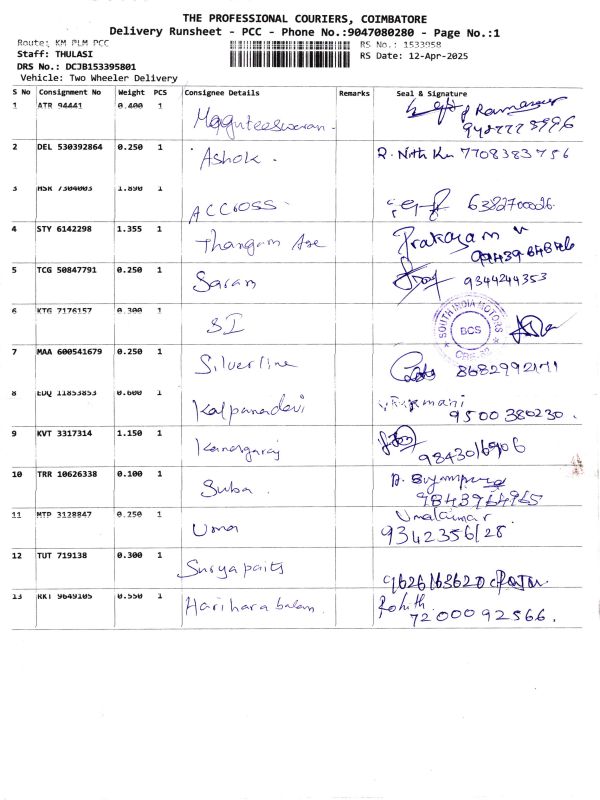 THE PROFESSIONAL COURIERS, COIMBATORE
Delivery Runsheet - PCC - Phone No.:9047080280 - Page No.:1
Route: KM PLM PCC
RS No.: 1533958
Staff: THULASI
RS Date: 12-Apr-2025
DRS No.: DCJB153395801
Vehicle: Two Wheeler Delivery
S No Consignment No Weight PCS Consignee Details Remarks Seal & Signature
1 ATR 94441 0.400 1
2 DEL 530392864 0.250 1 Ashok. R. Nith Ku 7708383756
3 HSR 7304003 1.890 1 ACCROSS. 6382700026
4 STY 6142298 1.355 1 Thangam Prakasam
5 TCG 50847791 0.250 1 Saram 9344244353
6 KTG 7176157 0.300 1 SI SOUTH INDIA MOTORS BCS CBE
7 MAA 600541679 0.250 1 Silverline 8682992171
8 EDQ 11853853 0.600 1 Kalpanadevi
9500380230.
9 KVT 3317314 1.150 1 Kanagaraj
10 TRR 10626338 0.100 1 Suba.
9843964965
11 MTP 3128847 0.250 1 Uma Umakumar
9342356128
12 TUT 719138 0.300 1 Suryaparts
9626163620
13 RKT 9649105 0.550 1 Harihara balan. Rohith
7200092566.